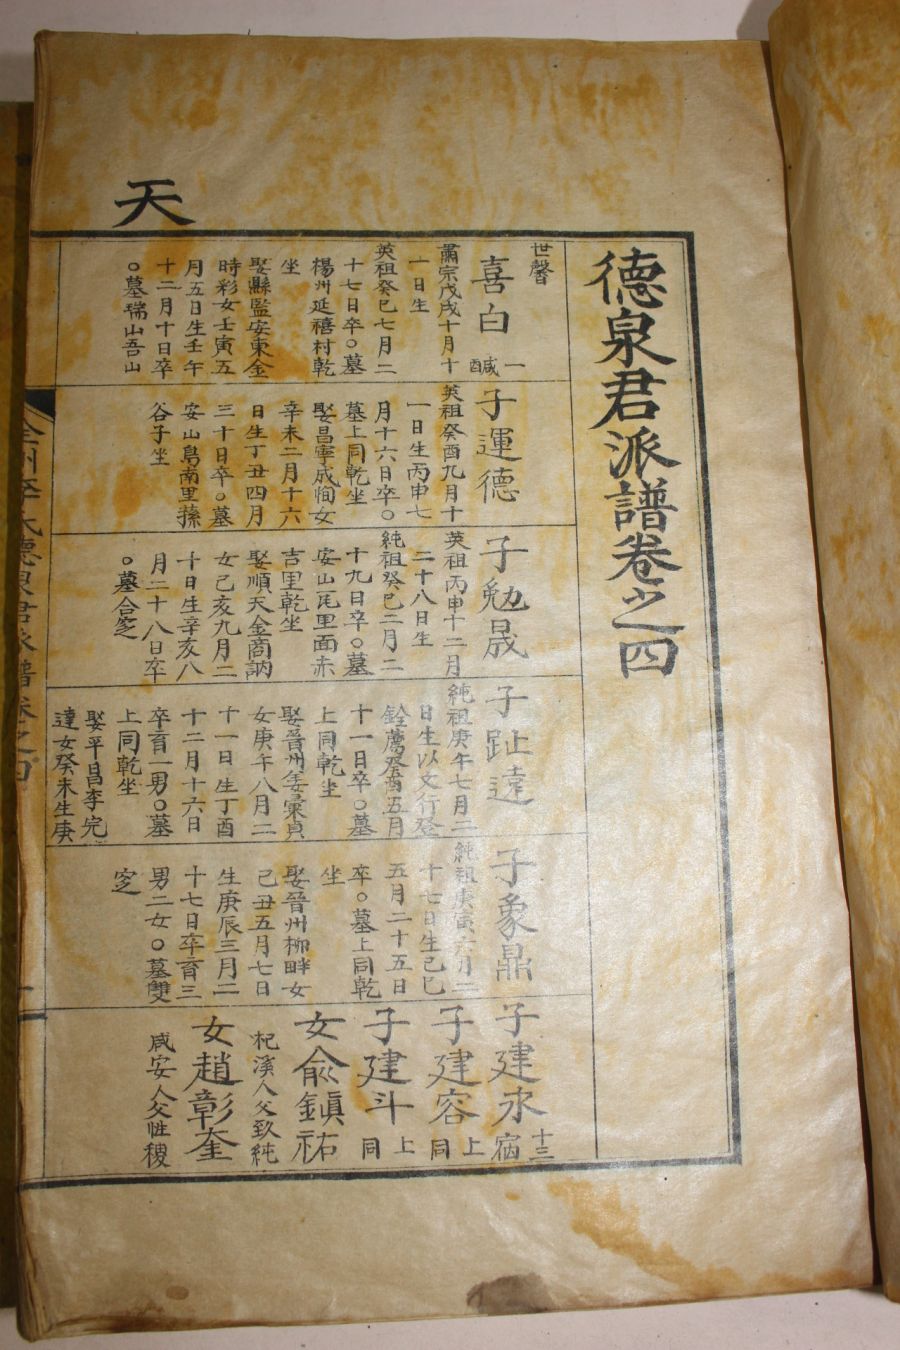 德泉君派譜卷之四
天
世馨
喜白
一 醎
肅宗戊戌十月十
一日生
英祖癸巳七月二
十七日卒○墓
楊州延禧村乾
坐
娶縣監安東金
時彩女壬寅五
月五日生壬午
十二月十日卒
○墓瑞山吾山
子運德
英祖癸酉九月十
一日生丙申七
月十六日卒○
墓上同乾坐
娶昌寧成恂女
辛未二月十六
日生丁丑四月
三十日卒○墓
安山鳥南里蓀
谷子坐
子勉晟
英祖丙申十二月
二十八日生
純祖癸巳二月二
十九日卒○墓
安山瓦里面赤
吉里乾坐
娶順天金商訥
女己亥九月二
十日生辛亥八
月二十八日卒
○墓合窆
子趾達
純祖庚午七月二
日生以文行登
銓薦癸酉五月
十一日卒○墓
上同乾坐
娶晉州姜彙貞
女庚午八月二
十一日生丁酉
十二月十六日
卒育一男○墓
上同乾坐
娶平昌李完
達女癸未生庚
子象鼎
純祖庚寅六月二
十七日生己巳
五月二十五日
卒○墓上同乾
坐
娶晉州柳畔女
己丑五月七日
生庚辰三月二
十七日卒育三
男二女○墓雙
窆
子建永
十三 㝛
子建容
上同
子建斗
上同
女兪鎭祐
杞溪人父致純
女趙彰奎
咸安人父性稷
全州李氏德泉君派譜卷之四
一